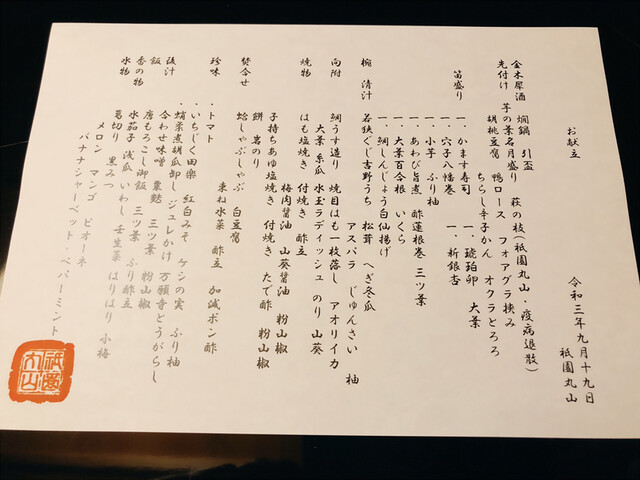 お献立
令和三年九月十九日
祇園丸山
金木犀酒 燗鍋 引盃
先付け 芋の葉名月盛り 萩の枝(祇園丸山・疫病退散)
胡桃豆腐 鴨ロース フォアグラ挟み
ちらし辛子かん オクラとろろ
笛盛り 一、かます寿司 一、琥珀卵 大葉
一、穴子八幡巻 一、新銀杏
一、小芋 ふり柚
一、あわび旨煮 酢蓮根巻 三ツ葉
一、大葉百合根 いくら
一、鯛しんじょう白仙揚げ
椀 清汁 若狭ぐじ吉野うち 松茸 へぎ冬瓜
アスパラ じゅんさい 柚
向附 鯛うす造り 焼目はも一枚落し アオリイカ
大葉 糸瓜 水玉ラディッシュ のり 山葵
はも塩焼き 付焼き 酢立
梅肉醤油 山葵醤油 粉山椒
焼物 子持ちあゆ塩焼き 付焼き たで酢 粉山椒
餅 岩のり
焚合せ 蛤しゃぶしゃぶ 白豆腐
束ね水菜 酢立 加減ポン酢
珍味 ・トマト
・いちじく田楽 紅白みそ ケシの実 ふり柚
・蛸葉煮胡瓜卸し ジュレかけ 万願寺とうがらし
後汁 合わせ味噌 粟麩 三ツ葉 粉山椒
飯 唐もろこし御飯 三ツ葉 ふり酢立
香の物 水茄子 浅瓜 いわし 壬生菜 はりはり 小梅
水物 葛切り 黒みつ
メロン マンゴ ピオーネ
バナナシャーベット・ペパーミント
祇園丸山